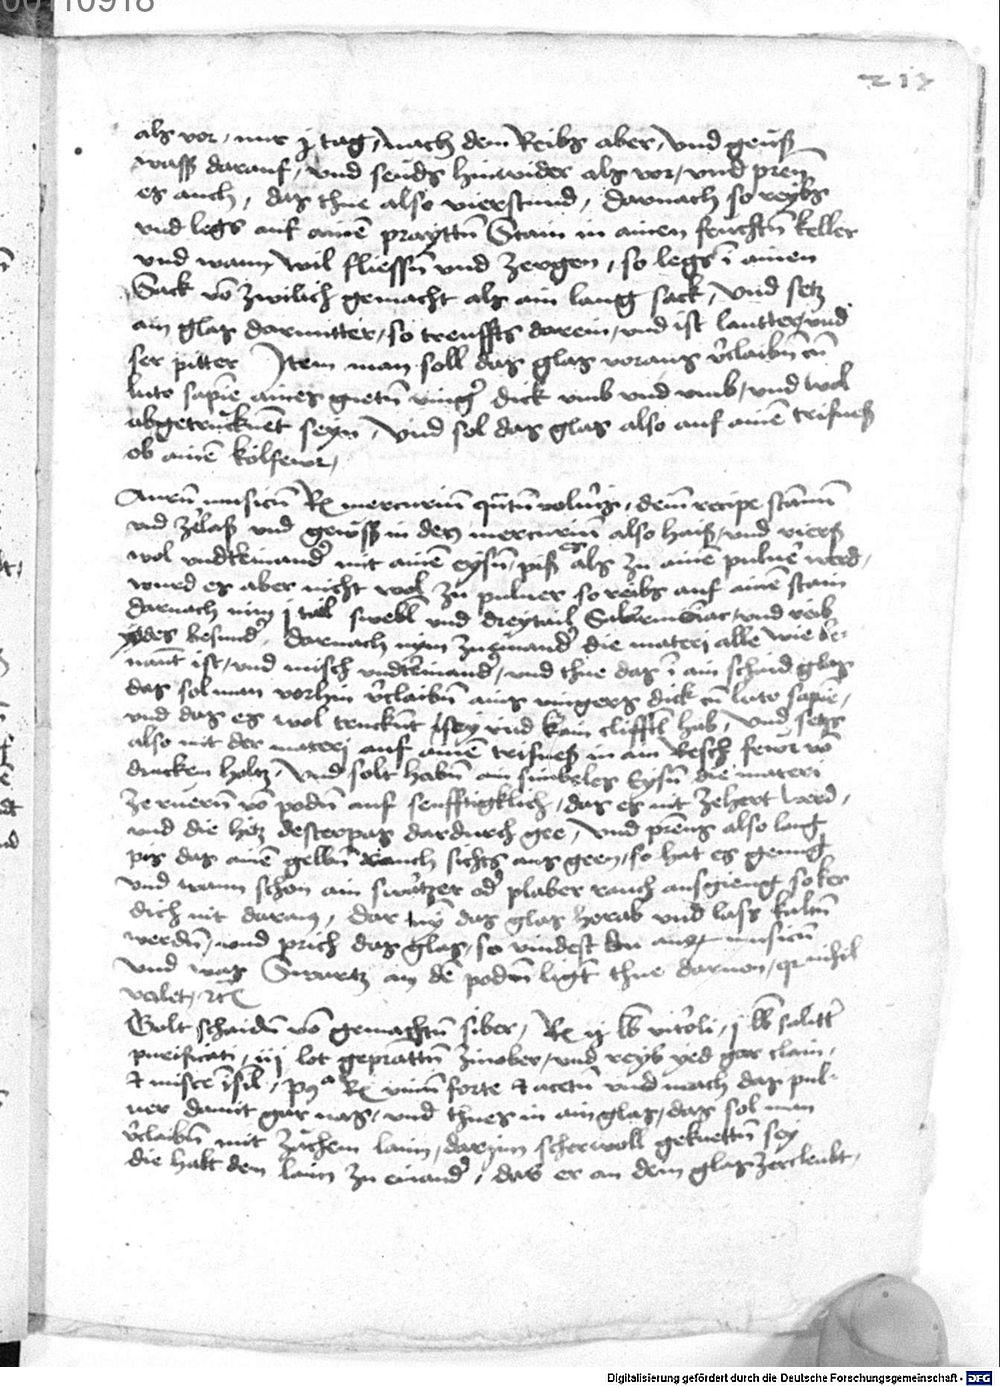 00110918
217
als vor, nur j tag, nach dem Reibs aber, vnd geuß
wasß darauf, vnd seuds hinwider als vor, vnd pren
es auch, das thue also vierstund, darnach so reybs
vnd legs auf ainē prayttn̄ Stain in ainen feuchtn̄ keller
vnd wann wil fliessn̄ vnd zergen, so legs ī ainen
Sack vō zwilich gemacht als ain lang sack, vnd setz
ain glas darunter, so treuffts darein, vnd ist lautter vnd
ser pitter Item man soll das glas voraus v̄claibn̄ cū
luto sapīe aines guetn̄ vinḡ dick vmb vnd vmb, vnd wol
abgetrucknēt seyn, vnd sol das glas also auf ainē trifueß
ob ainē kolfewr,
Aurū musicū Rx mercuriū q̄ntū volūis, deīn recipe stannū
vnd zelaß vnd gewss in den mercuriū also haiß, vnd rierß
wol vndteinand̄ mit ainē eysn̄, piß es als zu ainē puluer werd,
wurd es aber nicht wol zu puluer so reibs auf ainē stain
darnach nim j tail swebl̄ vnd dreytail Salarmōiac, vnd reib
ydes besund̄, darnach nym zueinand̄ die materj alle wie be-
nant ist, vnd misch vndteinand̄, vnd thue das ī ain schaid glas
das sol man vorhin v̄claibn̄ ains vingers dick cū luto sapīe,
vnd das es wol trucknt sey vnd kain clifftl hab, vnd setz
also mit der materj auf ainē trifueß in ain resch fewr vō
drucken holtz, vnd solt habn̄ ain sinbeles Eysn̄ die materi
ze ruern̄ vō podn̄ auf senfftigklich, das es nit zehert werd,
vnd die hitz desterpas dardurch gee, vnd prens also lang
pis das ainē gelbn̄ rauch sichts aus geen, so hat es genug
vnd wann schon ain swartzer od̄ plaber rauch ausgieng so ker
dich nit daran, dar nȳ das glas herab vnd lass kaltn̄
werdn̄, vnd prich das glas, so vindest du aurū musicū
vnd was Swartz an dē podn̄ ligt thue daruon, q̄ nihil
valet, rc̄
Golt schaidn̄ vō gemachtn̄ silber, Rx ij lb vitr̄oli, j lb salitt̄
purificati, iij lot geprāttn̄ zinober, vnd reyb yed gar clain,
et misce īsīl, p9ᵃ Rx vinū forte et acetū vnd mach das pul-
uer damit gar nas, vnd thues in ain glas, das sol man
v̄claibn̄ mit zachem laim, darjnn scherwoll geknettn̄ sey
die halt den laim zu einand̄, das er an dem glas zercleubt,
Digitalisierung gefördert durch die Deutsche Forschungsgemeinschaft - DFG